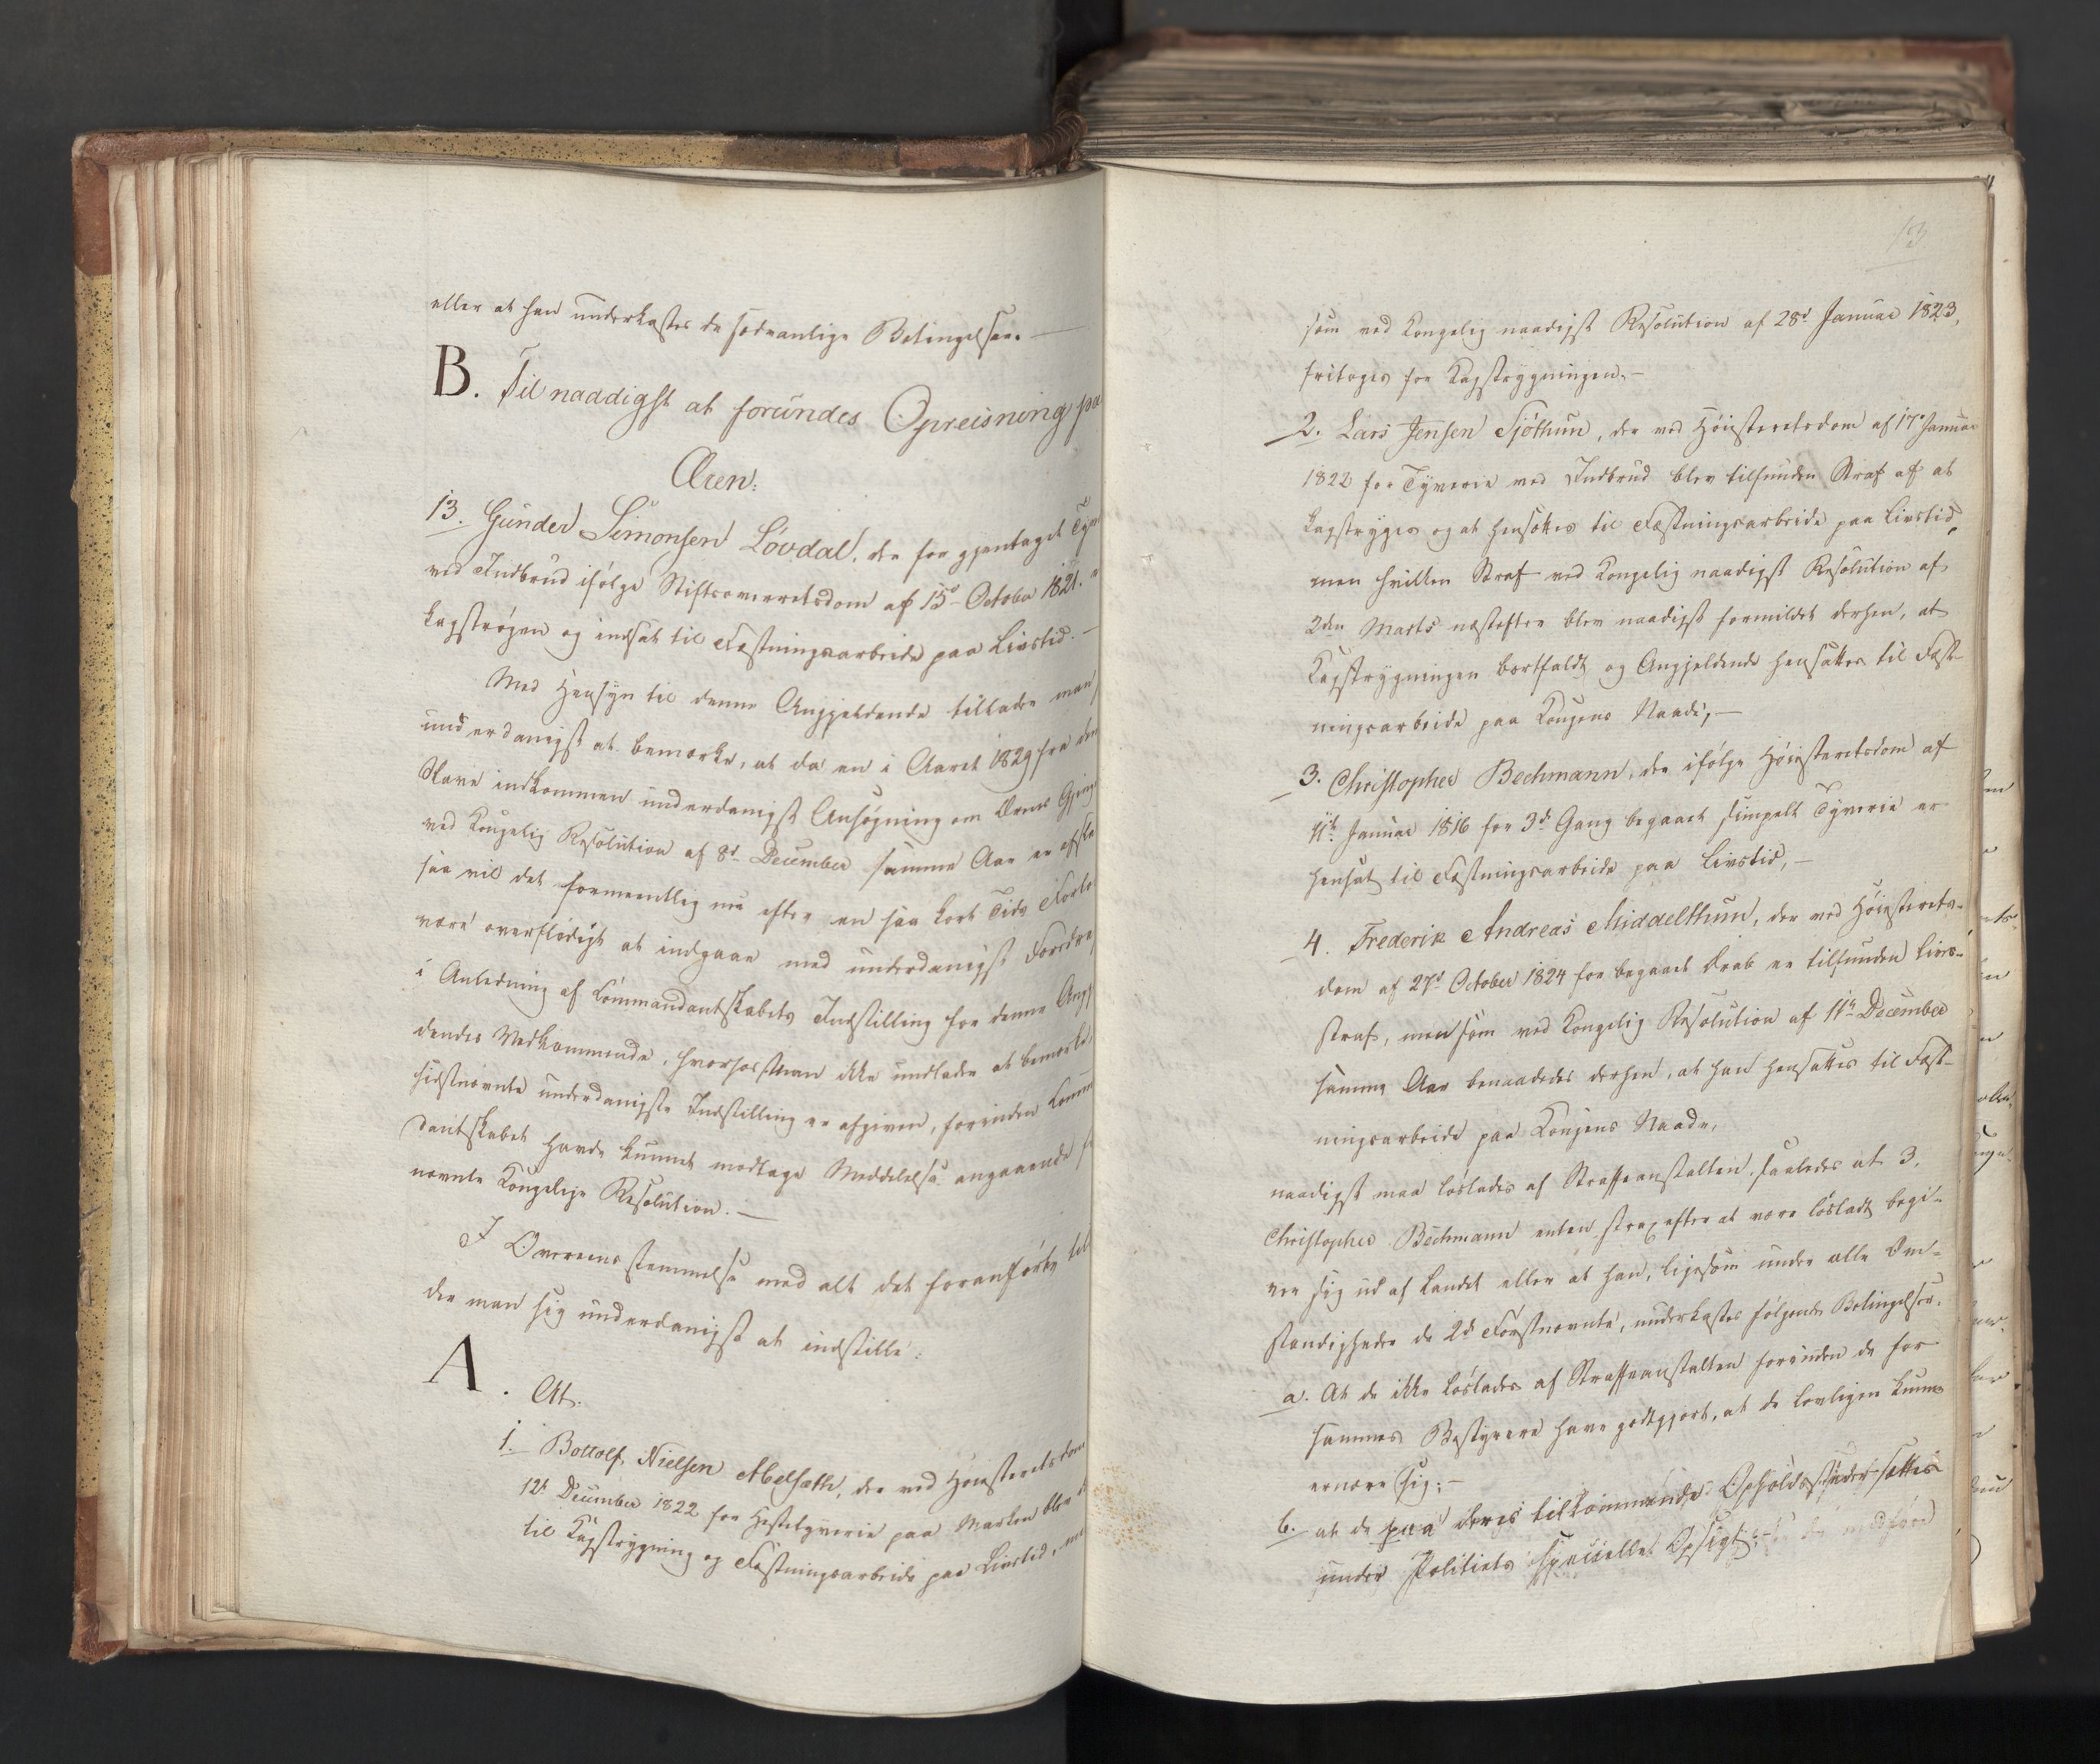 eller at han underkastes de sædvanlige Betingelser. —
B. Til naadigst at forundes Opreisning pa
Æren:
13. Gunder Simonsen Løvdal, der for gjentaget Tyve
ved Indbrud ifølge Stiftsoverretsdom af 15d October 1821.
kagstrøgen og indsat til Fæstningsarbeide paa Livstid. —
Med Hensyn til denne Angjeldende tillader man
underdanigst at bemærke, at da en i Aaret 1829 fra den
Slave indkommen underdanigst Ansøgning om Ærens Gjen
ved Kongelig Resolution af 8d December samme Aar er afsla
saa vil det formeentlig nu efter en saa kort Tids Forlø
være overflødigt at indgaae med underdanigst Foredra
i Anledning af Commandantskabets Indstilling for denne Angj
dendes Vedkommende, hvorhos man ikke undlader at bemærke,
sidstnævnte underdanigste Indstilling er afgiven, forinden Comm
dantskabet havde kunnet modtage Meddelelse angaaende
nævnte Kongelige Resolution. —
I Overeensstemmelse med alt det foranførte til
der man sig underdanigst at indstille:
A. At.
1. Bottolf Nielsen Abelsæth, der ved Høiesteretsdom
12te December 1822 for Hestetyverie paa Marken blev
til Kagstrygning og Fæstningsarbeide paa Livstid, men
13
som ved Kongelig naadigst Resolution af 28d Januar 1823,
fritoges for Kagstrygningen. —
2. Lars Jensen Tjøthun, der ved Høiesteretsdom af 17d Januar
1822 for Tyverie ved Indbrud blev tilfunden Straf af at
kagstryges og at hensættes til Fæstningsarbeide paa Livstid,
men hvilken Straf ved Kongelig naadigst Resolution af
2den Marts næstefter blev naadigst formildet derhen, at
Kagstrygningen bortfaldt og Angjeldende hensattes til Fæst-
ningsarbeide paa Kongens Naade, —
3. Christopher Bechmann, der ifølge Høiesteretsdom af
11te Januar 1816 for 3die Gang begaaet simpelt Tyverie er
hensat til Fæstningsarbeide paa Livstid, —
4. Frederik Andreas Middelthun, der ved Høiesterets-
dom af 27d October 1824 for begaaet Drab er tilfunden Livs-
straf, men som ved Kongelig Resolution af 11te December
samme Aar benaadedes derhen, at han hensattes til Fæst-
ningsarbeide paa Kongens Naade,
naadigst maa løslades af Straffeanstalten, saaledes at 3.
Christopher Bechmann enten strax efter at være løsladt begi-
ver sig ud af Landet eller at han, ligesom under alle Om-
stændigheder de 2de Førstnævnte, underkastes følgende Betingelser.
a. At de ikke løslades af Straffeanstalten forinden de for
sammes Bestyrere have godtgjort, at de lovligen kunne
ernære sig; —
b. at de paa deres tilkommende Opholdssteder sættes
under Politiets specielle Opsigt; —